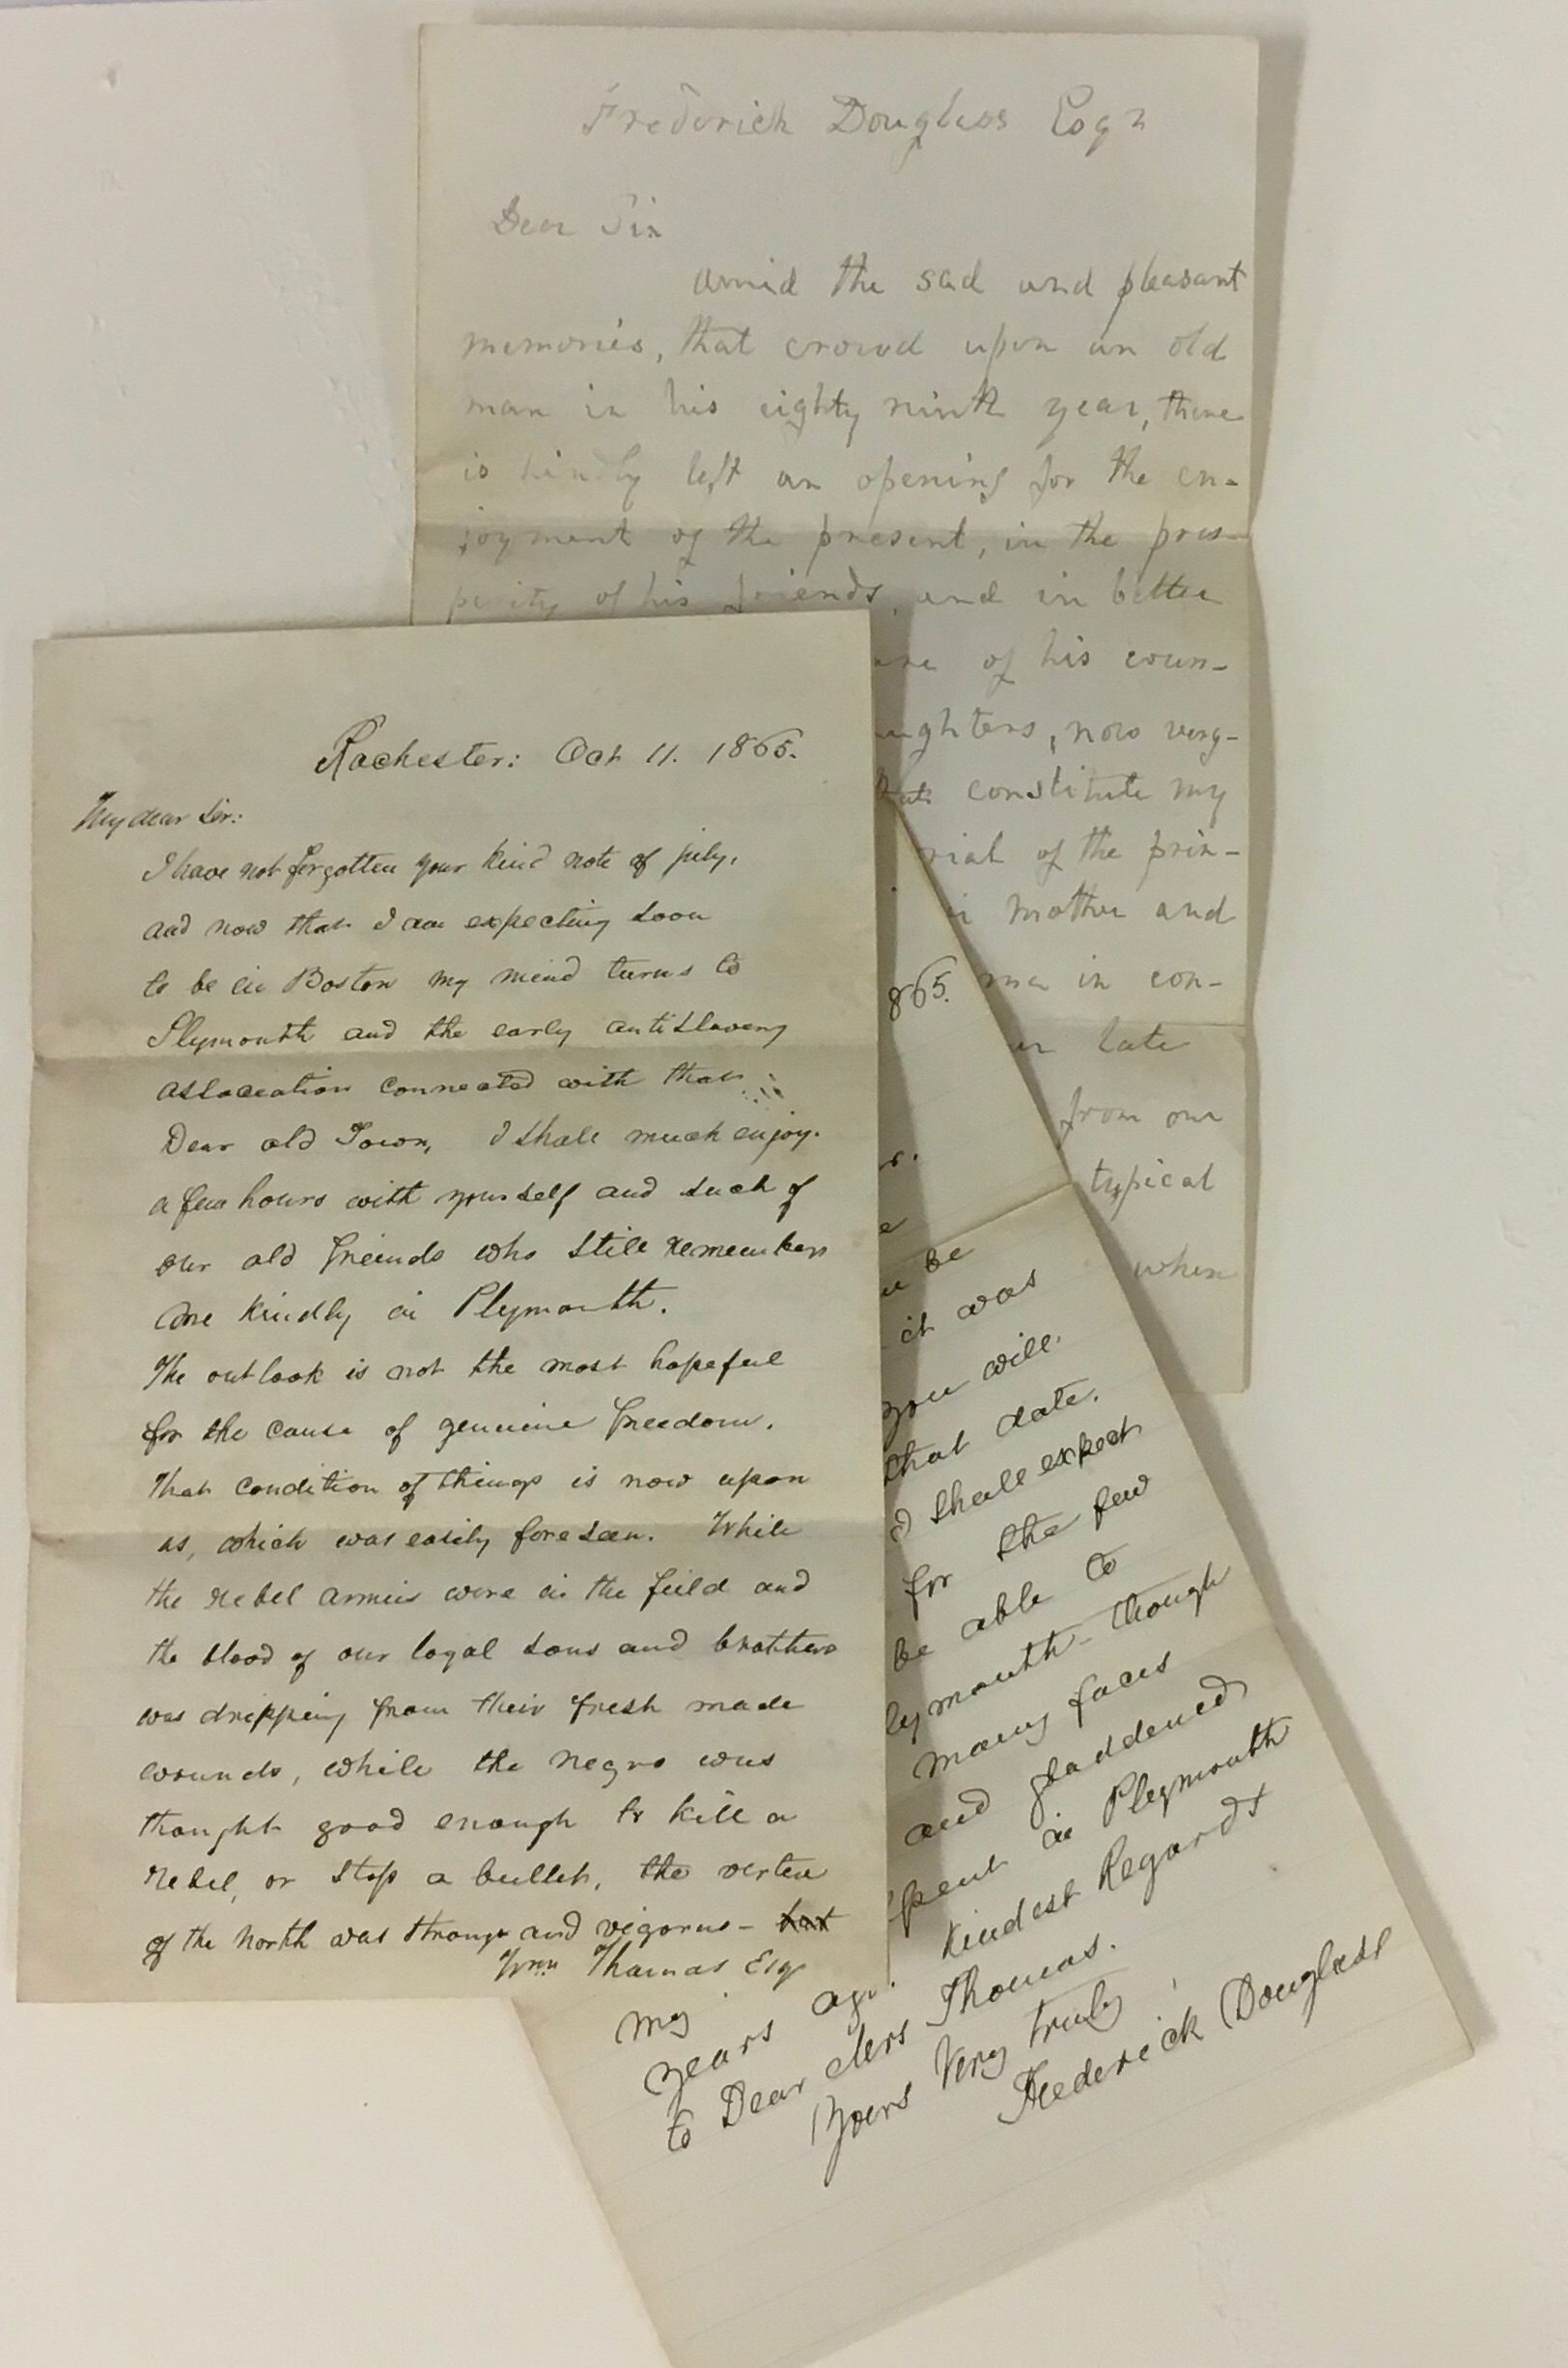 Frederick Douglass Esqr
Dear Sir
amid the sad and pleasant
memories, that crowd upon an old
man in his eighty ninth year, there
is kindly left an opening for the en-
joyment of the present, in the pros-
perity of his friends, and in better
of his coun-
ughters, now verg-
constitute my
rial of the prin-
mother and
in con-
late
from our
typical
when
Rochester: Oct 11. 1865.
My dear Sir:
I have not forgotten your kind note of july,
and now that I am expecting soon
to be in Boston my mind turns to
Plymouth and the early antislavery
association connected with that
Dear old Town, I shall much enjoy
a few hours with yourself and such of
our old freinds who still remember
me kindly in Plymouth.
The outlook is not the most hopeful
for the cause of genuine freedom.
That condition of things is now upon
us, which was easily foreseen. While
the rebel armies were in the feild and
the blood of our loyal sons and brothers
was dripping from their fresh made
wounds, while the negro was
thought good enough to kill a
rebel, or stop a bullet, the vertue
of the North was strong and vigorus - but
Wm Thomas Esq
865.
r.
e
be
it was
you will
that date.
I shall expect
for the few
be able to
lymouth - though
many faces
and gladdened
pent in Plymouth
my
years ago. Kindest Regards
to Dear Mrs Thomas.
Yours Very truly
Frederick Douglass